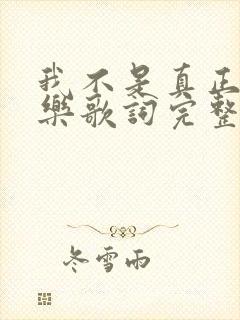 我不是真正
樂歌詞完整
冬雪雨